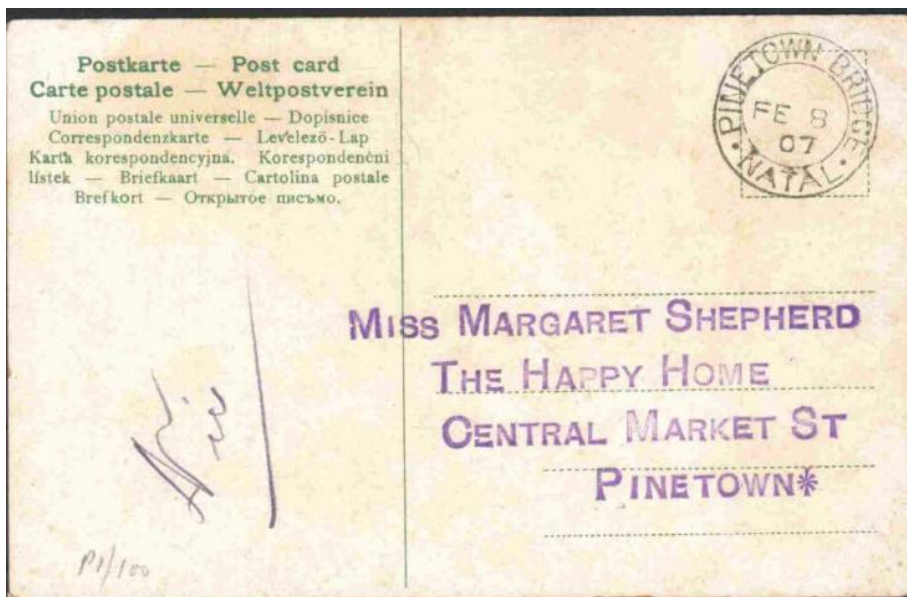 Postkarte — Post card
Carte postale — Weltpostverein
Union postale universelle — Dopisnice
Correspondenzkarte — Levelező-Lap
Karta korespondencyjna. Korespondenčni
lístek — Briefkaart — Cartolina postale
Brefkort — Открытое письмо.
PINETOWN BRIDGE
FE 8
07
NATAL
MISS MARGARET SHEPHERD
THE HAPPY HOME
CENTRAL MARKET ST
PINETOWN*
P1/100